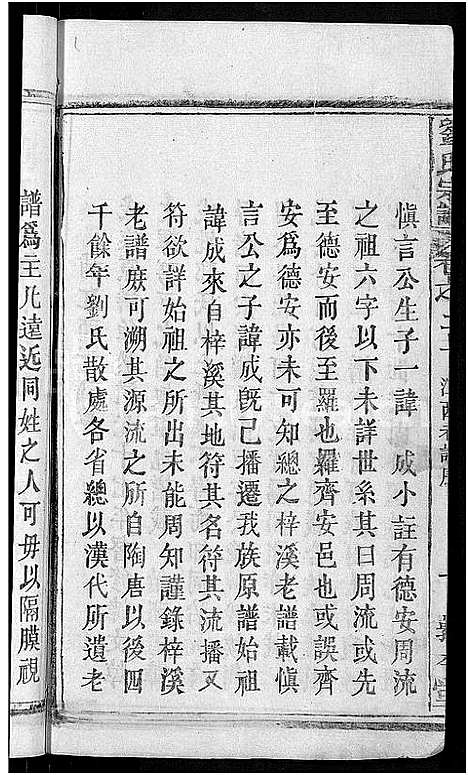 劉氏宗譜
愼言公生子一諱 成小註有德安周流
之祖六字以下未詳世系其曰周流或先
至德安而後至羅也羅齊安邑也或誤齊
安爲德安亦未可知總之梓溪老譜載愼
言公之子諱成旣已播遷我族原譜始祖
諱成來自梓溪其地符其名符其流播又
符欲詳始祖之所出未能周知謹錄梓溪
老譜庶可溯其源流之所自陶唐以後四
千餘年劉氏散處各省總以漢代所遺老
譜爲主凡遠近同姓之人可毋以隔膜視